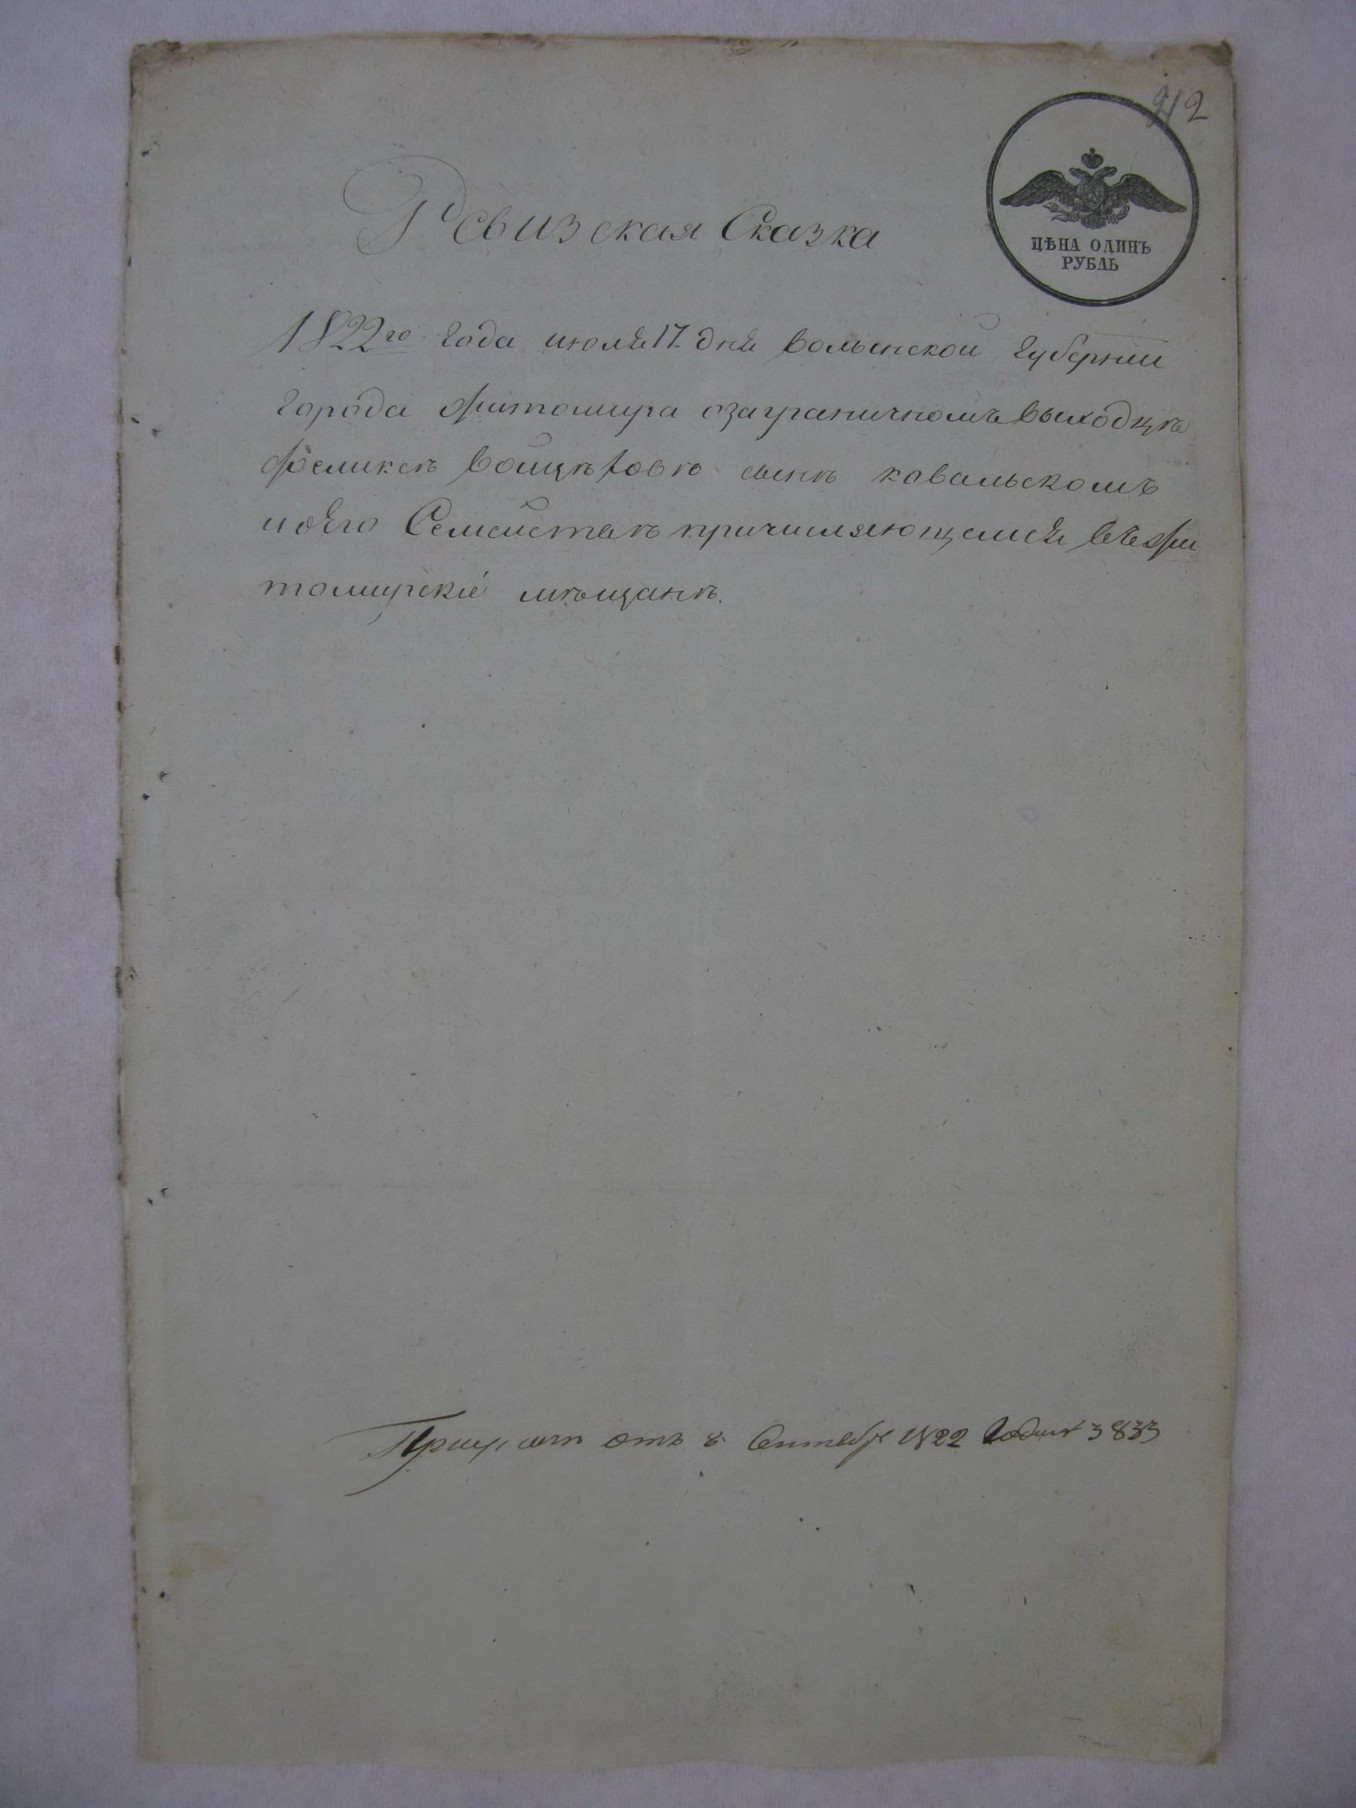 212
ЦѢНА ОДИНЪ
РУБЛЬ
Ревизская Сказка
1822го года июля 17 дня волынской губернии
города житомира озаграничномъ выходцѣ
феликсѣ войцѣховѣ сынѣ ковальскомъ
и его Семействѣ причисляющемся въ жи
томирскіе мѣщанѣ.
отъ 8 Сентебр 1822 Года 3833